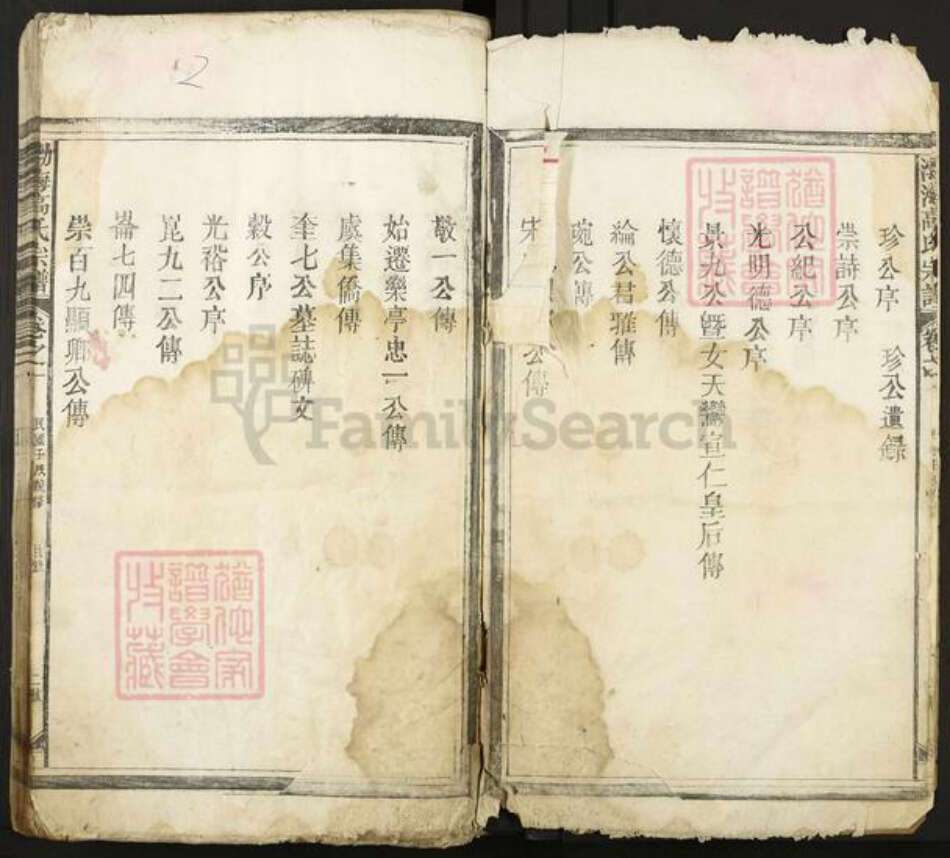 珍公序 珍公遺錄
崇詩公序
公紀公序
光明德公序
公暨女天 宣仁皇后傳
懷德公傳
綸公君雅傳
琬公傳
宋 公傳
敬一公傳
始遷樂亭忠一公傳
虞集僑傳
奎七公墓誌碑文
穀公序
光裕公序
崑九二公傳
崙七四傳
崇百九顯卿公傳
渤海高氏宗譜
卷之一
渤海高氏宗譜
猶他家譜學會收藏
猶他家譜學會收藏
FamilySearch
2